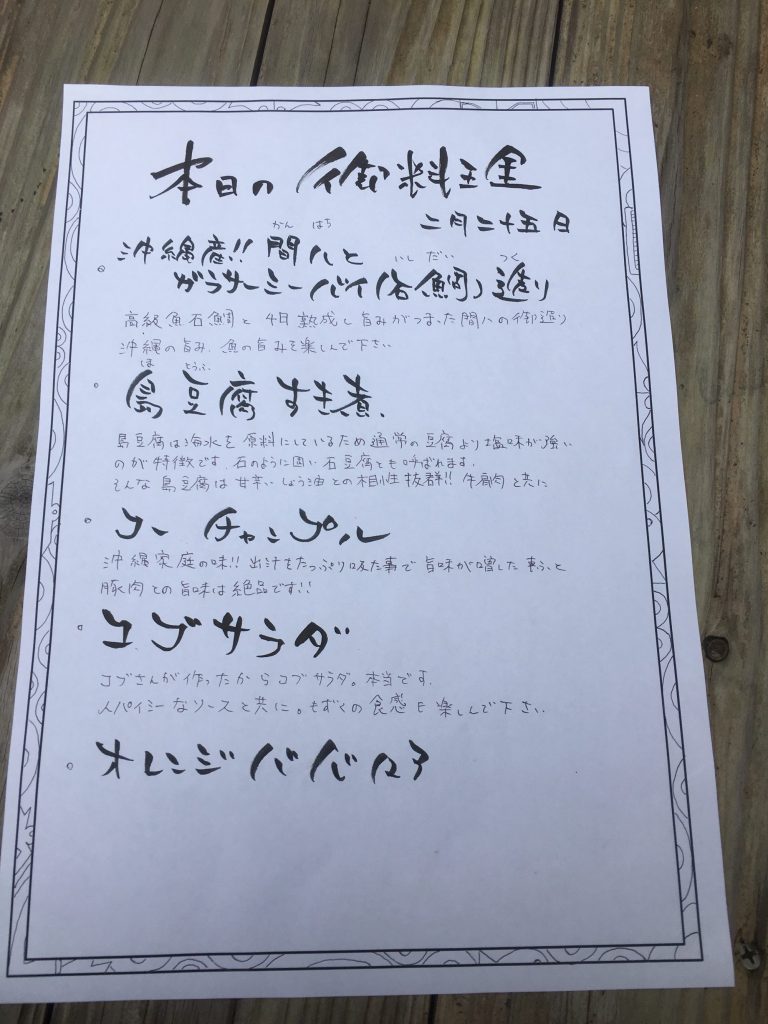 本日の御料理
二月二十五日
かん はち
沖縄産!! 間八と
いしだい つく
ガラサーミーバイ(石鯛)造り
高級魚石鯛と 4日熟成し旨みがつまった間八の御造り
沖縄の旨み、魚の旨みを楽しんで下さい
しま とうふ
島豆腐すき煮、
島豆腐は海水を原料にしているため通常の豆腐より塩味が強い
のが特徴です。石のように固い石豆腐とも呼ばれます。
そんな島豆腐は甘辛いしょう油との相性抜群!! 牛肩肉と共に
フーチャンプル
沖縄家庭の味!! 出汁をたっぷり吸った事で旨味が増した麩と
豚肉との旨味は絶品です!!
コブサラダ
コブさんが作ったからコブサラダ。本当です。
スパイシーなソースと共に。もずくの食感も楽しんで下さい
オレンジババロア